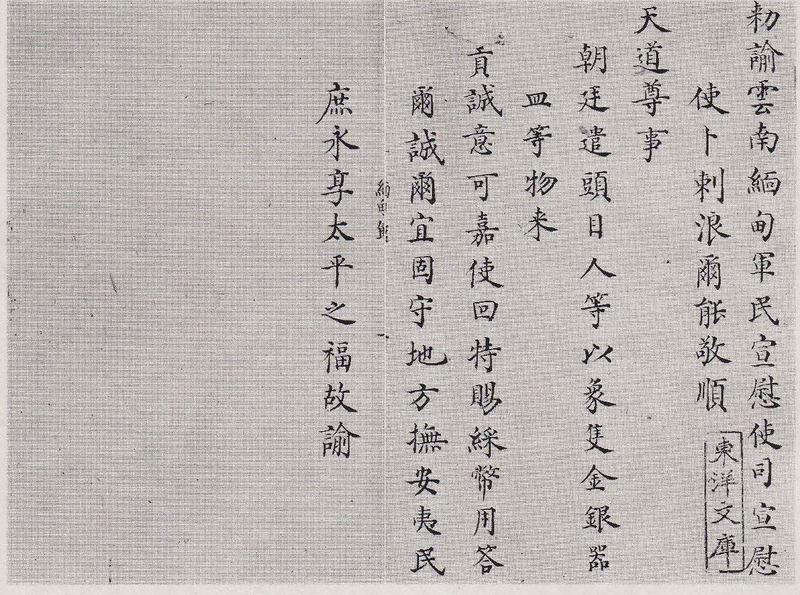 勑諭雲南緬甸軍民宣慰使司宣慰
使卜剌浪爾能敬順
天道尊事
朝廷遣頭目人等以象隻金銀器
皿等物来
貢誠意可嘉使回特賜綵幣用答
爾誠爾宜固守地方撫安夷民
庶永享太平之福故諭
東洋文庫
緬甸